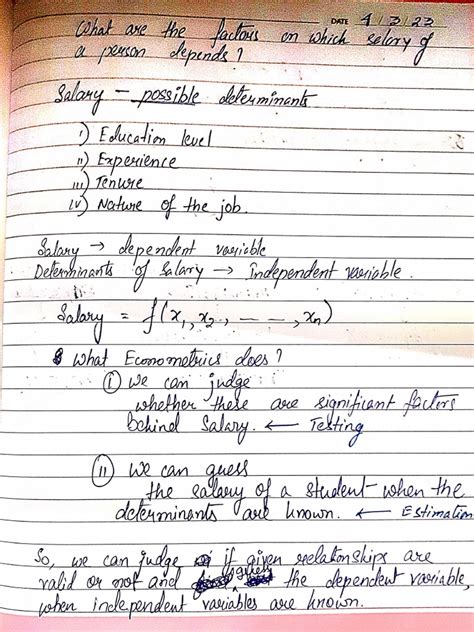 DATE 1/3/23
What are the factors on which salary of
a person depends?
Salary – possible determinants
i) Education level
ii) Experience
iii) Tenure
iv) Nature of the job.
Salary → dependent variable
Determinants of Salary → Independent variable.
Salary = f(x1, x2, – – – –, xn)
What Econometrics does?
(i) we can judge
whether these are significant factors
behind Salary. ← Testing
(ii) we can guess
the salary of a student when the
determinants are known. ← Estimation
So, we can judge if given relationships are
valid or not and guess the dependent variable,
when independent variables are known.